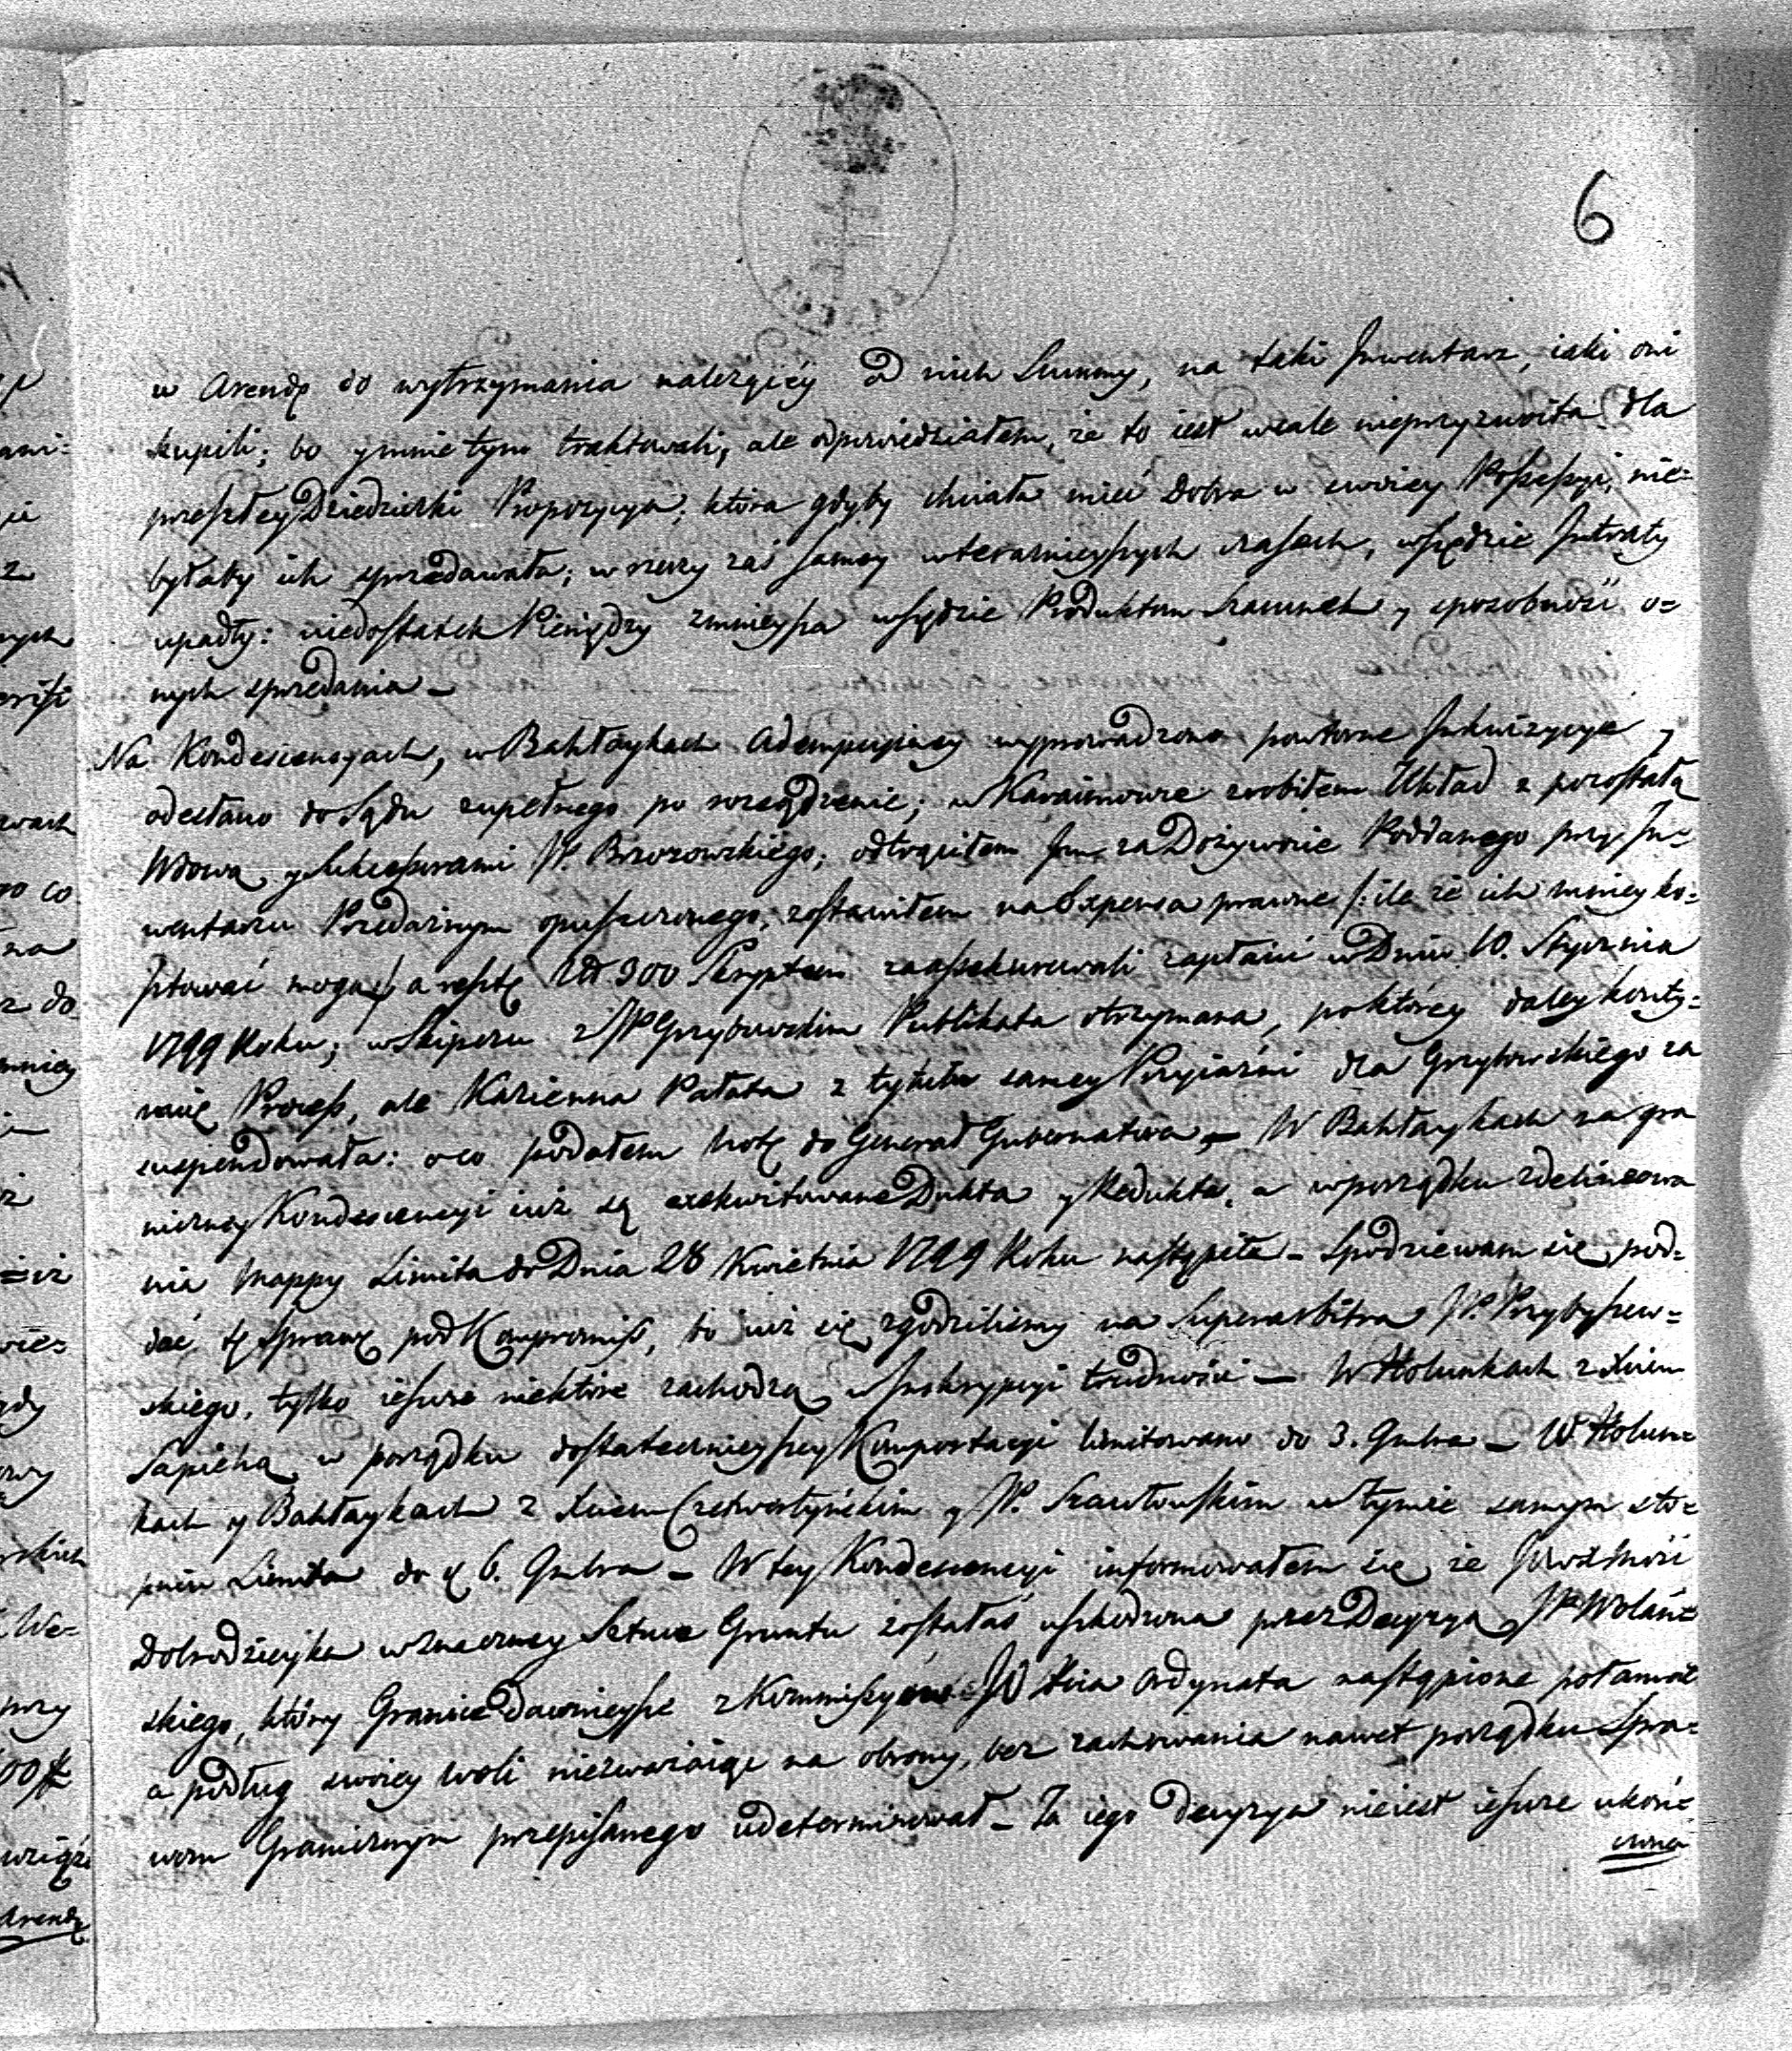 6
w Arendę do wytrzymania należącéy od nich Summy, na taki Inwentarz, iaki oni
kupili; bo ymnie tym traktowali, ale odpowiedziałem, że to iest wcale nieprzyzwoita dla
przeszłey Dziedziczki Propozycya, która gdyby chciała mieć Dobra w swoiey Possessyi, nie=
byłaby ich sprzedawała; w rzeczy zaś samey wteraznieyszych czasach, wszędzie Intraty
upadły: niedostatek Pieniędzy zmnieysza wszędzie Produktom Szacunek y sposobność o=
nych sprzedania –
Na Kondescensyach, w Bakłaykach wyprowadzono powtorne Inkwizycye y
odesłano do Sądu zupełnego po rozsądzenie; w Karaimowce zrobiłem Układ z pozostałą
Wdową y Sukcessorami JP. Brzozowskiego; odtrąciłem im za Dożywocie Poddanego przy In=
wentarzu Przedażnym opuszczonego, zostawiłem na Expensa prawne /: ile że ich mniey ko=
sztować mogą a resztę 900 Skryptem zaassekurowali zapłacić w Dniu 10. Stycznia
1799 Roku; w Skiperu z JP Grzybowskim Publikata otrzymana, po którey daley konty=
nuię Process, ale Kazienna Pałata z tytułu samey Przyiaźni dla Grzybowskiego za
suspendowała: oco podałem Notę do Generał Gubernatora, – W Bakłaykach na gra
niczney Kondescencyi iuż są exekwitowane Dukta y Redukta, a w porządku zdelineowa
nia Mappy Limita do Dnia 28 Kwietnia 1799 Roku nastąpiła – Spodziewam się pod=
dać tę Sprawę pod Kompromiss, bo iuż się zgodziliśmy na Superarbitra JP. Przybyszew=
skiego, tylko ieszcze niektóre zachodzą w Inskrypcyi trudności – W Holunkach z Xciem
Sapiehą w porządku dostatecznieyszey Komportacyi limitowano do 3. Gmbra – W Holun=
kach y Bakłaykach z Xciem Czetwertyńskim y JP. Szawłowskim w tymże samym sto=
pniu Limita do d 6. Gmbra – W tey Kondescencyi informowałem się że JWWd Mość
Dobrodzieyka wznaczney Sztuce Gruntu zostałaś uszkodzona przez Decyzyą JP Wolań=
skiego, który Granice dawnieysze z Kommissyów JO Xcia Ordynata nastąpione połamał
a podług swoiey woli niezważaiąc na obrony, bez zachowania nawet porządku Spra=
wom Granicznym przepisanego udeterminował – Ta iego decyzya nieiest ieszcze ukoń=
czona